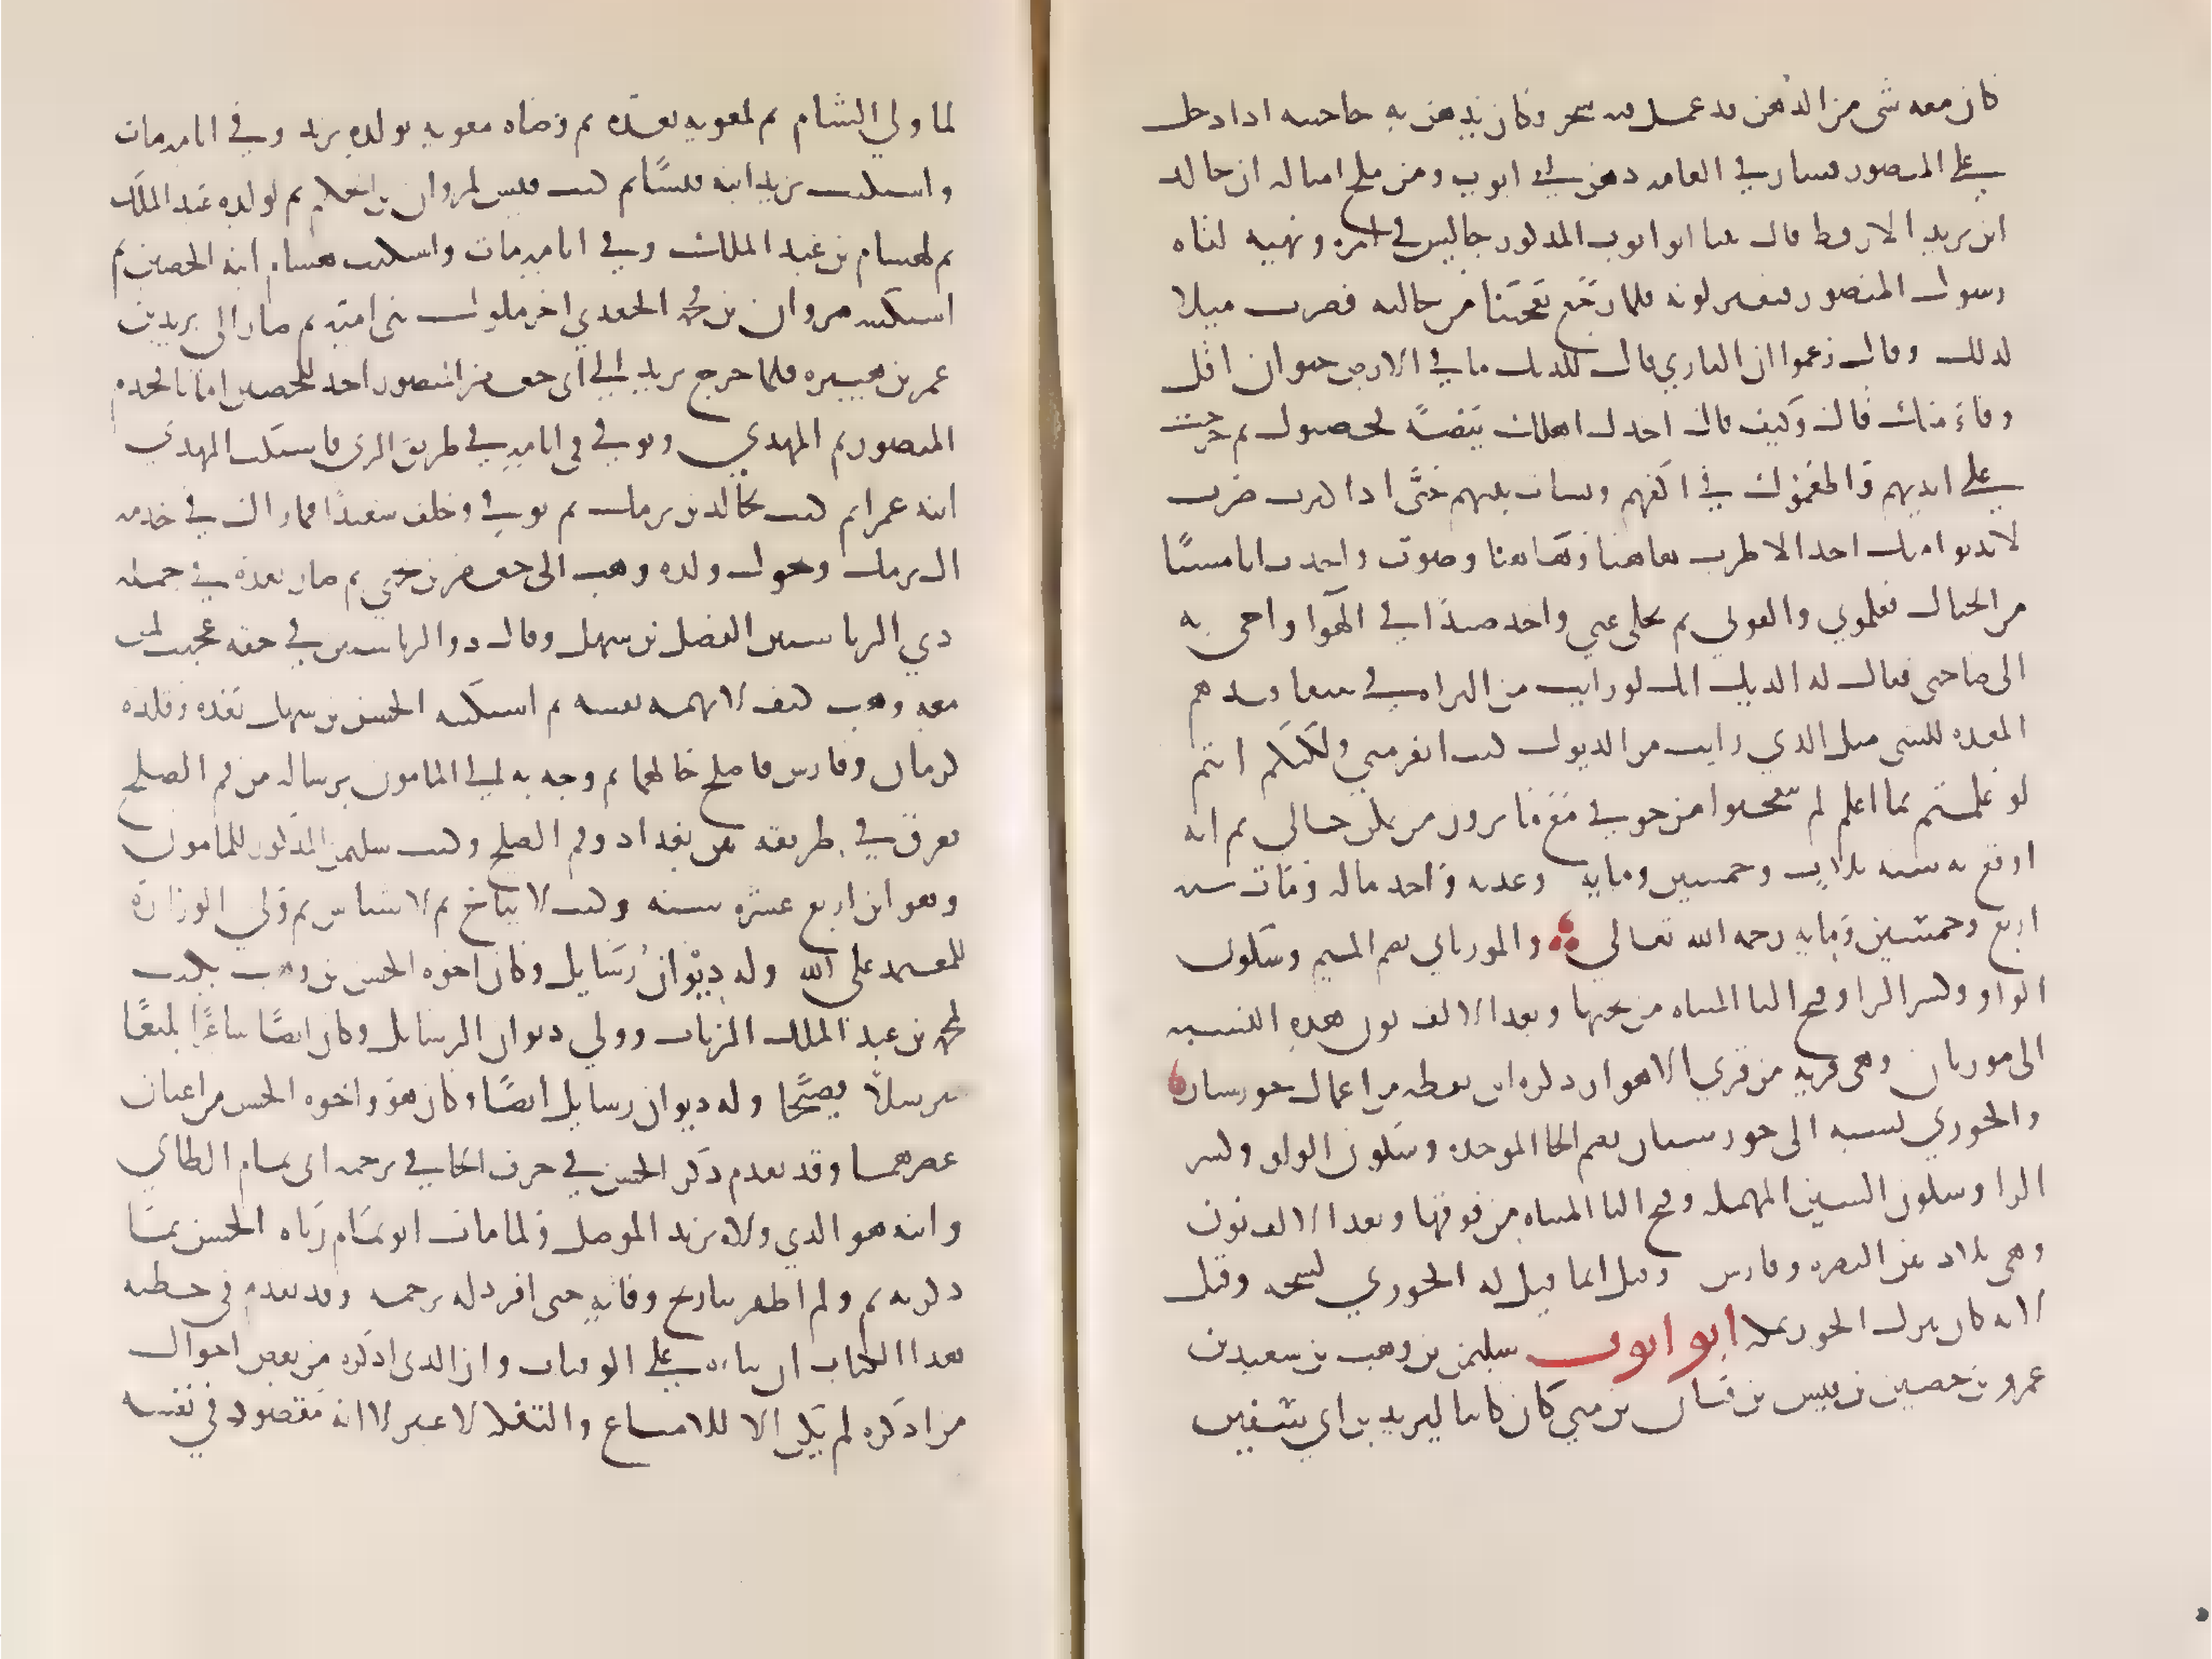 كان معه شى من الدهن قد عمل فيه سحر وكان يدهن به حاجبيه اذا دخل
على المنصور فسار في العامة دهن ابي ايوب ومن ملح امثاله ان خالد
ابن يزيد الارقط قال بينا ابو ايوب المذكور جالس في امره ونهيه اتاه
رسول المنصور فتغير لونه فلما رجع تعجبنا من حالته فضرب مثلا
لذلك وقال زعموا ان البازي قال للديك ما في الارض حيوان اقل
وفاء منك قال وكيف قال اخذك اهلك بيضة فحضنوك ثم خرجت
على ايديهم واطعموك في اكفهم ونشات بينهم حتى اذا كبرت صرت
لا يدنو منك احد الا طرت هاهنا وهاهنا وصوت واخذت انا مسنا
من الجبال فعلموني والفوني ثم يخلى عني واخذ صيدا في الهوا واجى به
الى صاحبي فقال له الديك انك لو رايت من البزاة في سفافيدهم
المعدة للشى مثل الذي رايت من الديوك كنت انفر مني ولكنكم انتم
لو علمتم ما اعلم لم تتعجبوا من خوفي مع ما ترون من تمكن حالي ثم انه
اوقع به سنة ثلاث وخمسين وماية وعذبه واخذ ماله ومات سنة
اربع وخمسين وماية رحمه الله تعالى والمورياني بضم الميم وسكون
الواو وكسر الرا وفتح اليا المثناة من تحتها وبعد الالف نون هذه النسبة
الى موريان وهى قرية من قرى الاهواز ذكره ابن نقطة من اعمال خوزستان
والخوزي نسبة الى خوزستان بضم الخا الموحدة وسكون الواو وكسر
الزا وسكون السين المهملة وفتح التا المثناة من فوقها وبعد الالف نون
وهى بلاد بين البصرة وفارس وقيل انما قيل له الخوزي لشحه وقيل
لانه كان ينزل الخوز بمكة ابو ايوب سليمن بن وهب بن سعيد بن
عمرو بن حصين بن قيس بن قنان بن متي كان كاتبا ليزيد بن ابي سفين
لما ولي الشام ثم لمعويه بعده ثم وصاه معويه بولده يزيد وفي ايامه مات
واستكتب يزيد ابنه قيسا ثم كتب قيس لمروان بن الحكم ثم لولده عبد الملك
ثم لهشام بن عبد الملك وفي ايامه مات واستكتب هشام ابنه الحصين ثم
استكتبه مروان بن محمد الجعدي اخر ملوك بني امية ثم صار الى يزيد بن
عمر بن هبيره فلما خرج يزيد الى ابي جعفر المنصور اخذ للحصين امانا لخدم
المنصور ثم المهدي وتوفي في ايامه في طريق الري فاستكتب المهدي
ابنه عمرا ثم كتب لخالد بن برمك ثم توفي وخلف سعيدا فما زال في خدمة
ال برمك وتحول ولده وهب الى جعفر بن يحيى ثم صار بعده في جملة
ذي الرياستين الفضل بن سهل وقال ذو الرياستين في حقه عجبت لمن
معه وهب كيف لا تهمه نفسه ثم استكتبه الحسن بن سهل بعده وقلده
كرمان وفارس فاصلح حالهما ثم وجه به الى المامون برسالة من فم الصلح
فغرق في طريقه بين بغداد وفم الصلح وكتب سليمن المذكور للمامون
وهو ابن اربع عشره سنه وكتب لايتاخ ثم لاشناس ثم ولي الوزارة
للمعتمد على الله وله ديوان رسايل وكان اخوه الحسن بن وهب يكتب
لمحمد بن عبد الملك الزيات وولي ديوان الرسايل وكان ايضا شاعرا بليغا
مترسلا فصيحا وله ديوان رسايل ايضا وكان هو واخوه الحسن من اعيان
عصرهما وقد تقدم ذكر الحسن في حرف الحا في ترجمة ابى تمام الطائي
وانه هو الذي ولاه بريد الموصل ولما مات ابو تمام رثاه الحسن بما
ذكرته ثم ولم اظفر بتاريخ وفاته حتى افرد له ترجمه وقد تقدم في خطبة
هذا الكتاب ان بناءه على الوفيات وان الذي اذكره من بعض احوال
من اذكره لم يكن الا للامتاع والتفكه لا غير لا انه مقصود في نفسه